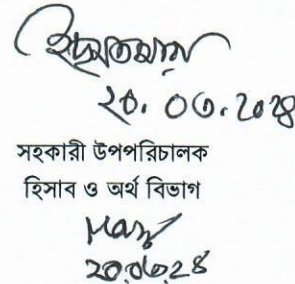 ২০.০৩.২০২৪
সহকারী উপপরিচালক
হিসাব ও অর্থ বিভাগ
২০.০৩.২৪